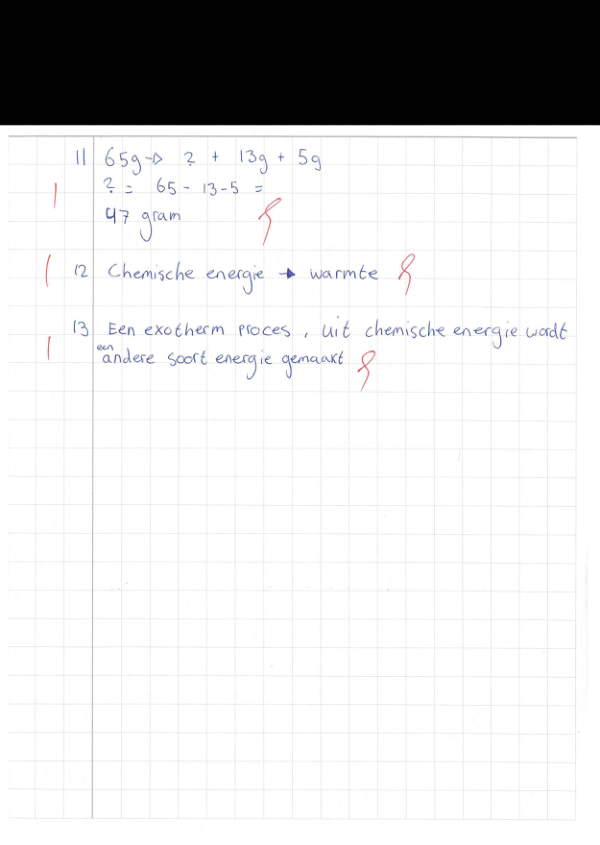 11 65g → ? + 13g + 5g
1 ? = 65 - 13 - 5 =
47 gram
1 12 Chemische energie → warmte
13 Een exotherm proces, uit chemische energie wordt
1 een andere soort energie gemaakt